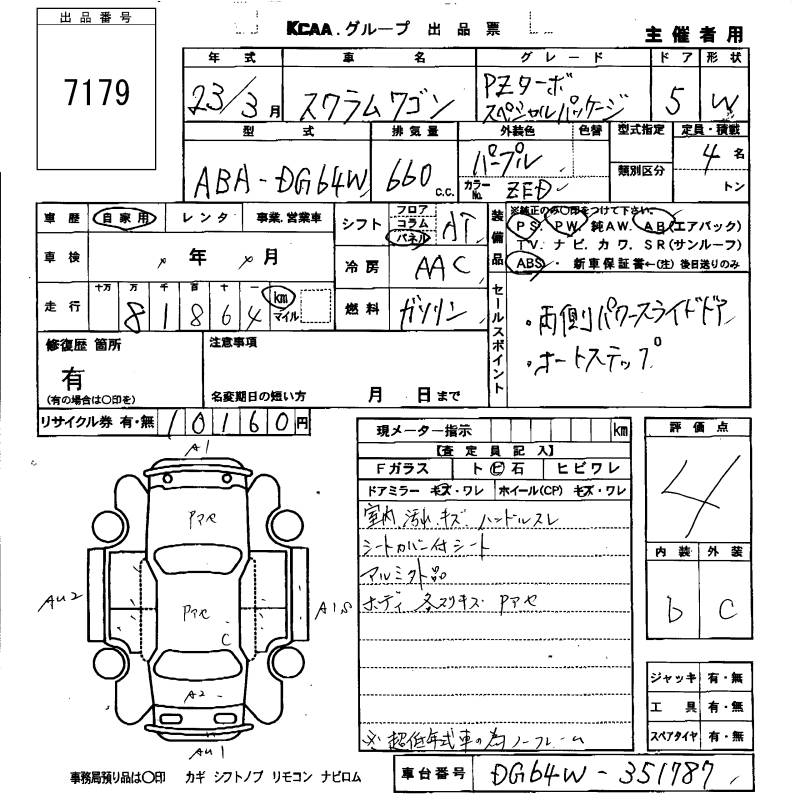 出品番号
7179
KCAA.グループ 出品票
主催者用
年式 車名 グレード ドア 形状
23/3月 スクラムワゴン PZターボ スペシャルパッケージ 5 W
型式 排気量 外装色 色替 型式指定 定員・積載
ABA-DG64W 660 C.C. パープル 4名
カラーNo. ZED 類別区分 トン
車歴 自家用 レンタ 事業.営業車
シフト フロア コラム パネル AT
装備品
※純正のみ〇印をつけて下さい。
PS. PW. 純AW. AB(エアバック)
TV. ナビ. カワ. SR(サンルーフ)
ABS. 新車保証書←(注)後日送りのみ
車検 年 月
冷房 AAC
走行 十万 万 千 百 十 一
81864 km マイル
燃料 ガソリン
セールスポイント
・両側パワースライドドア
・オートステップ
修復歴 箇所
有
(有の場合は〇印を)
注意事項
名変期日の短い方 月 日まで
リサイクル券 有・無 10160円
現メーター指示 km
【査定員記入】
Fガラス ト ビ 石 ヒビワレ
ドアミラー キズ・ワレ ホイール(CP) キズ・ワレ
室内 汚れ キズ ハンドルスレ
シートカバー付シート
アルミ
ボディ 各スリキズ Pアセ
※超低年式車の為ノークレーム
評価点
4
内装 外装
b C
ジャッキ 有・無
工具 有・無
スペアタイヤ 有・無
A1
Pアセ
AU2
Pアセ
A1S
C
A2
AU1
事務局預り品は〇印 カギ シフトノブ リモコン ナビロム
車台番号 DG64W-351787